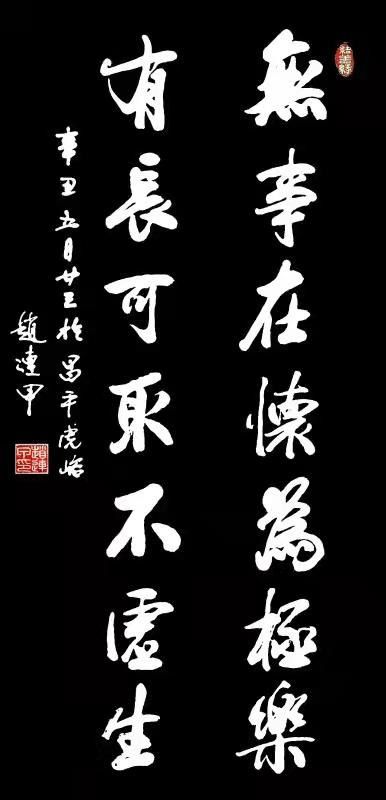 無事在懷為極樂
有長可取不虛生
辛丑五月廿三於昌平虎峪
趙連甲